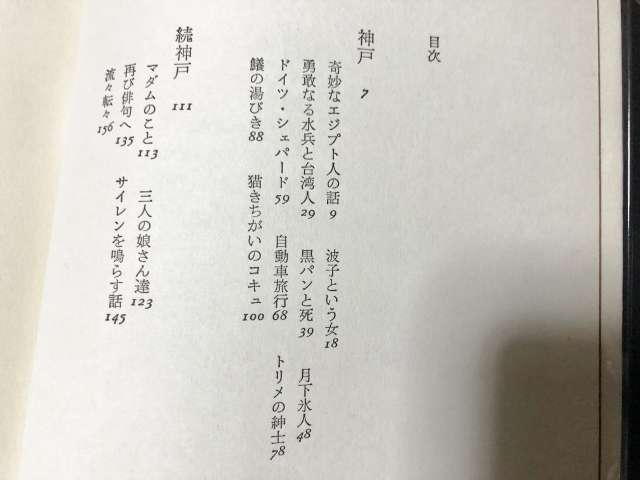 目次
神戸 7
奇妙なエジプト人の話 9 波子という女 18
勇敢なる水兵と台湾人 29 黒パンと死 39 月下氷人 48
ドイツ・シェパード 59 自動車旅行 68 トリメの紳士 78
鱶の湯びき 88 猫きちがいのコキュ 100
続神戸 111
マダムのこと 113 三人の娘さん達 123
再び俳句へ 135 サイレンを鳴らす話 145
流々転々 156